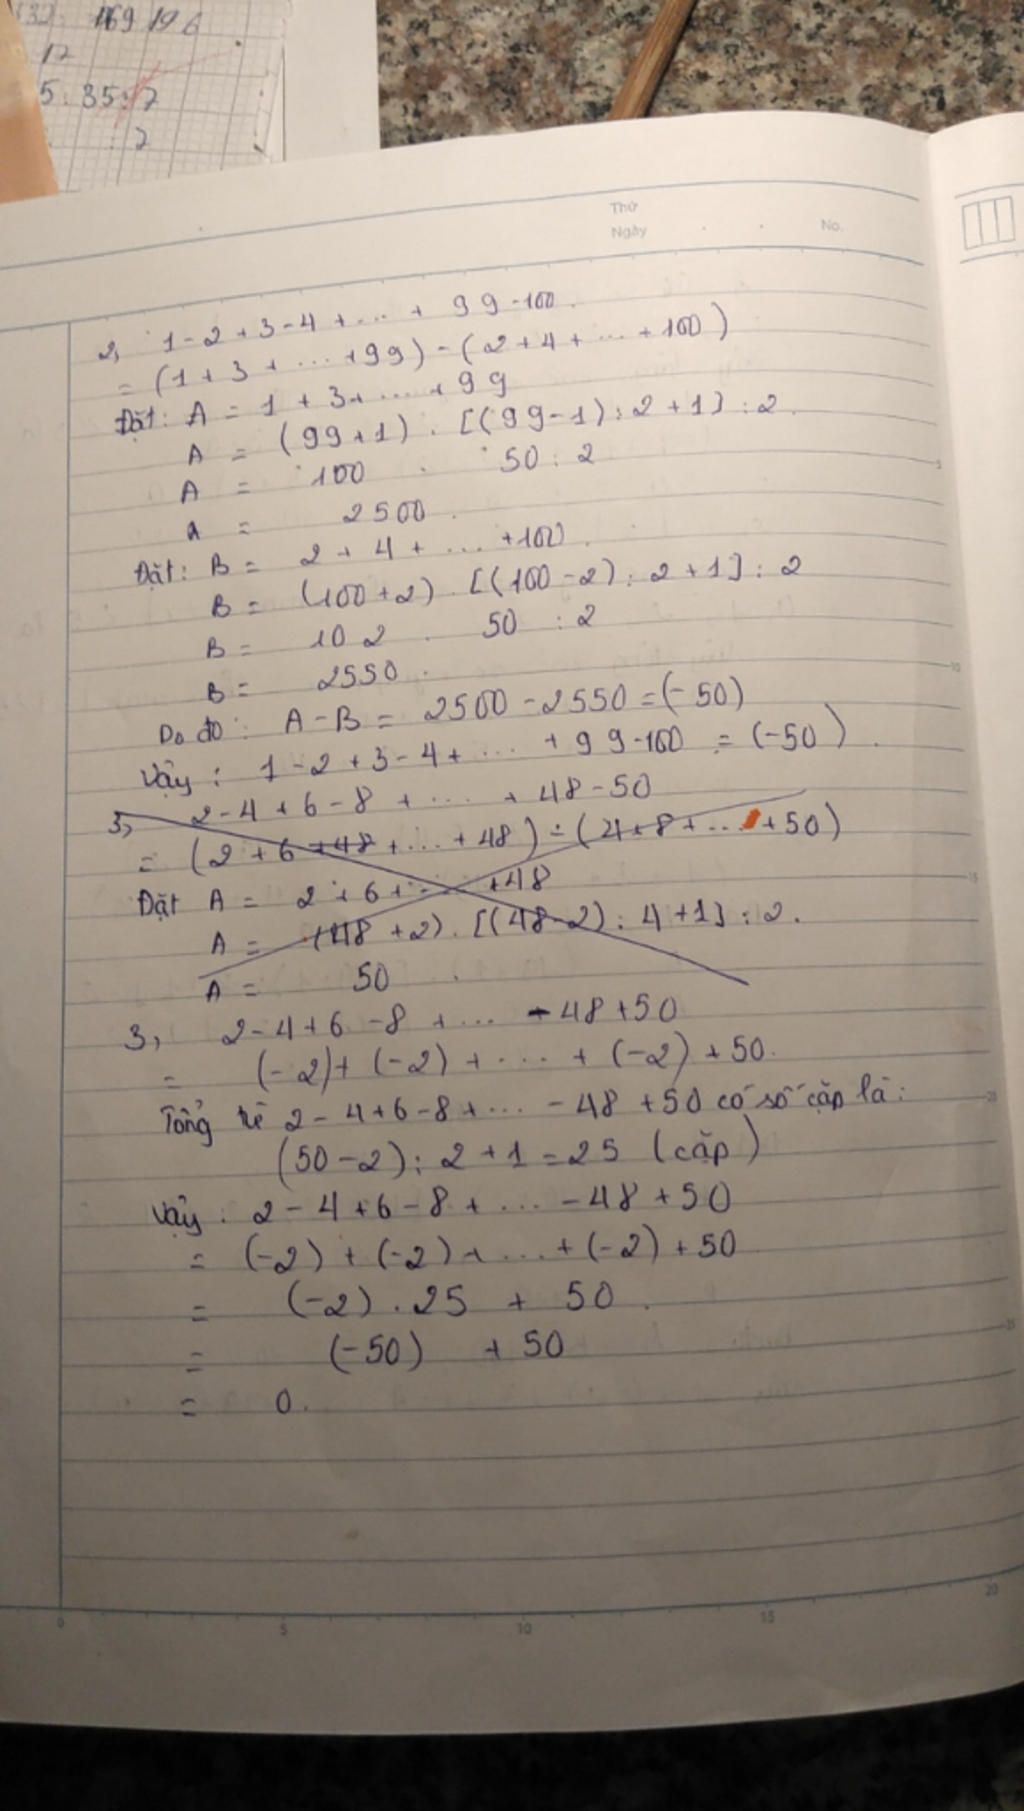 169 196
17
5: 35:7
: 2
Thứ
Ngày
No.
2, 1-2+3-4+...+ 99-100.
= (1+3+...+99)-(2+4+...+100)
Đặt: A = 1+3+...+99
A = (99+1).[(99-1):2+1]:2.
A = 100 . 50:2
A = 2500.
Đặt: B = 2+4+...+100.
B = (100+2).[(100-2):2+1]:2
B = 102 . 50 :2
B = 2550.
Do đó: A-B = 2500-2550=(-50)
Vậy: 1-2+3-4+...+99-100 = (-50).
3, 2-4+6-8+...+48-50
= (2+6+48+...+48)-(4+8+...+50)
Đặt A = 2+6+...+48
A = (48+2).[(48-2):4+1]:2.
A = 50 .
3, 2-4+6-8+...-48+50
= (-2)+(-2)+...+(-2)+50.
Tổng 2-4+6-8+...-48+50 có số cặp là:
(50-2):2+1=25 (cặp)
Vậy: 2-4+6-8+...-48+50
= (-2)+(-2)+...+(-2)+50
= (-2).25 + 50.
= (-50) +50
= 0.
0 5 10 15 20